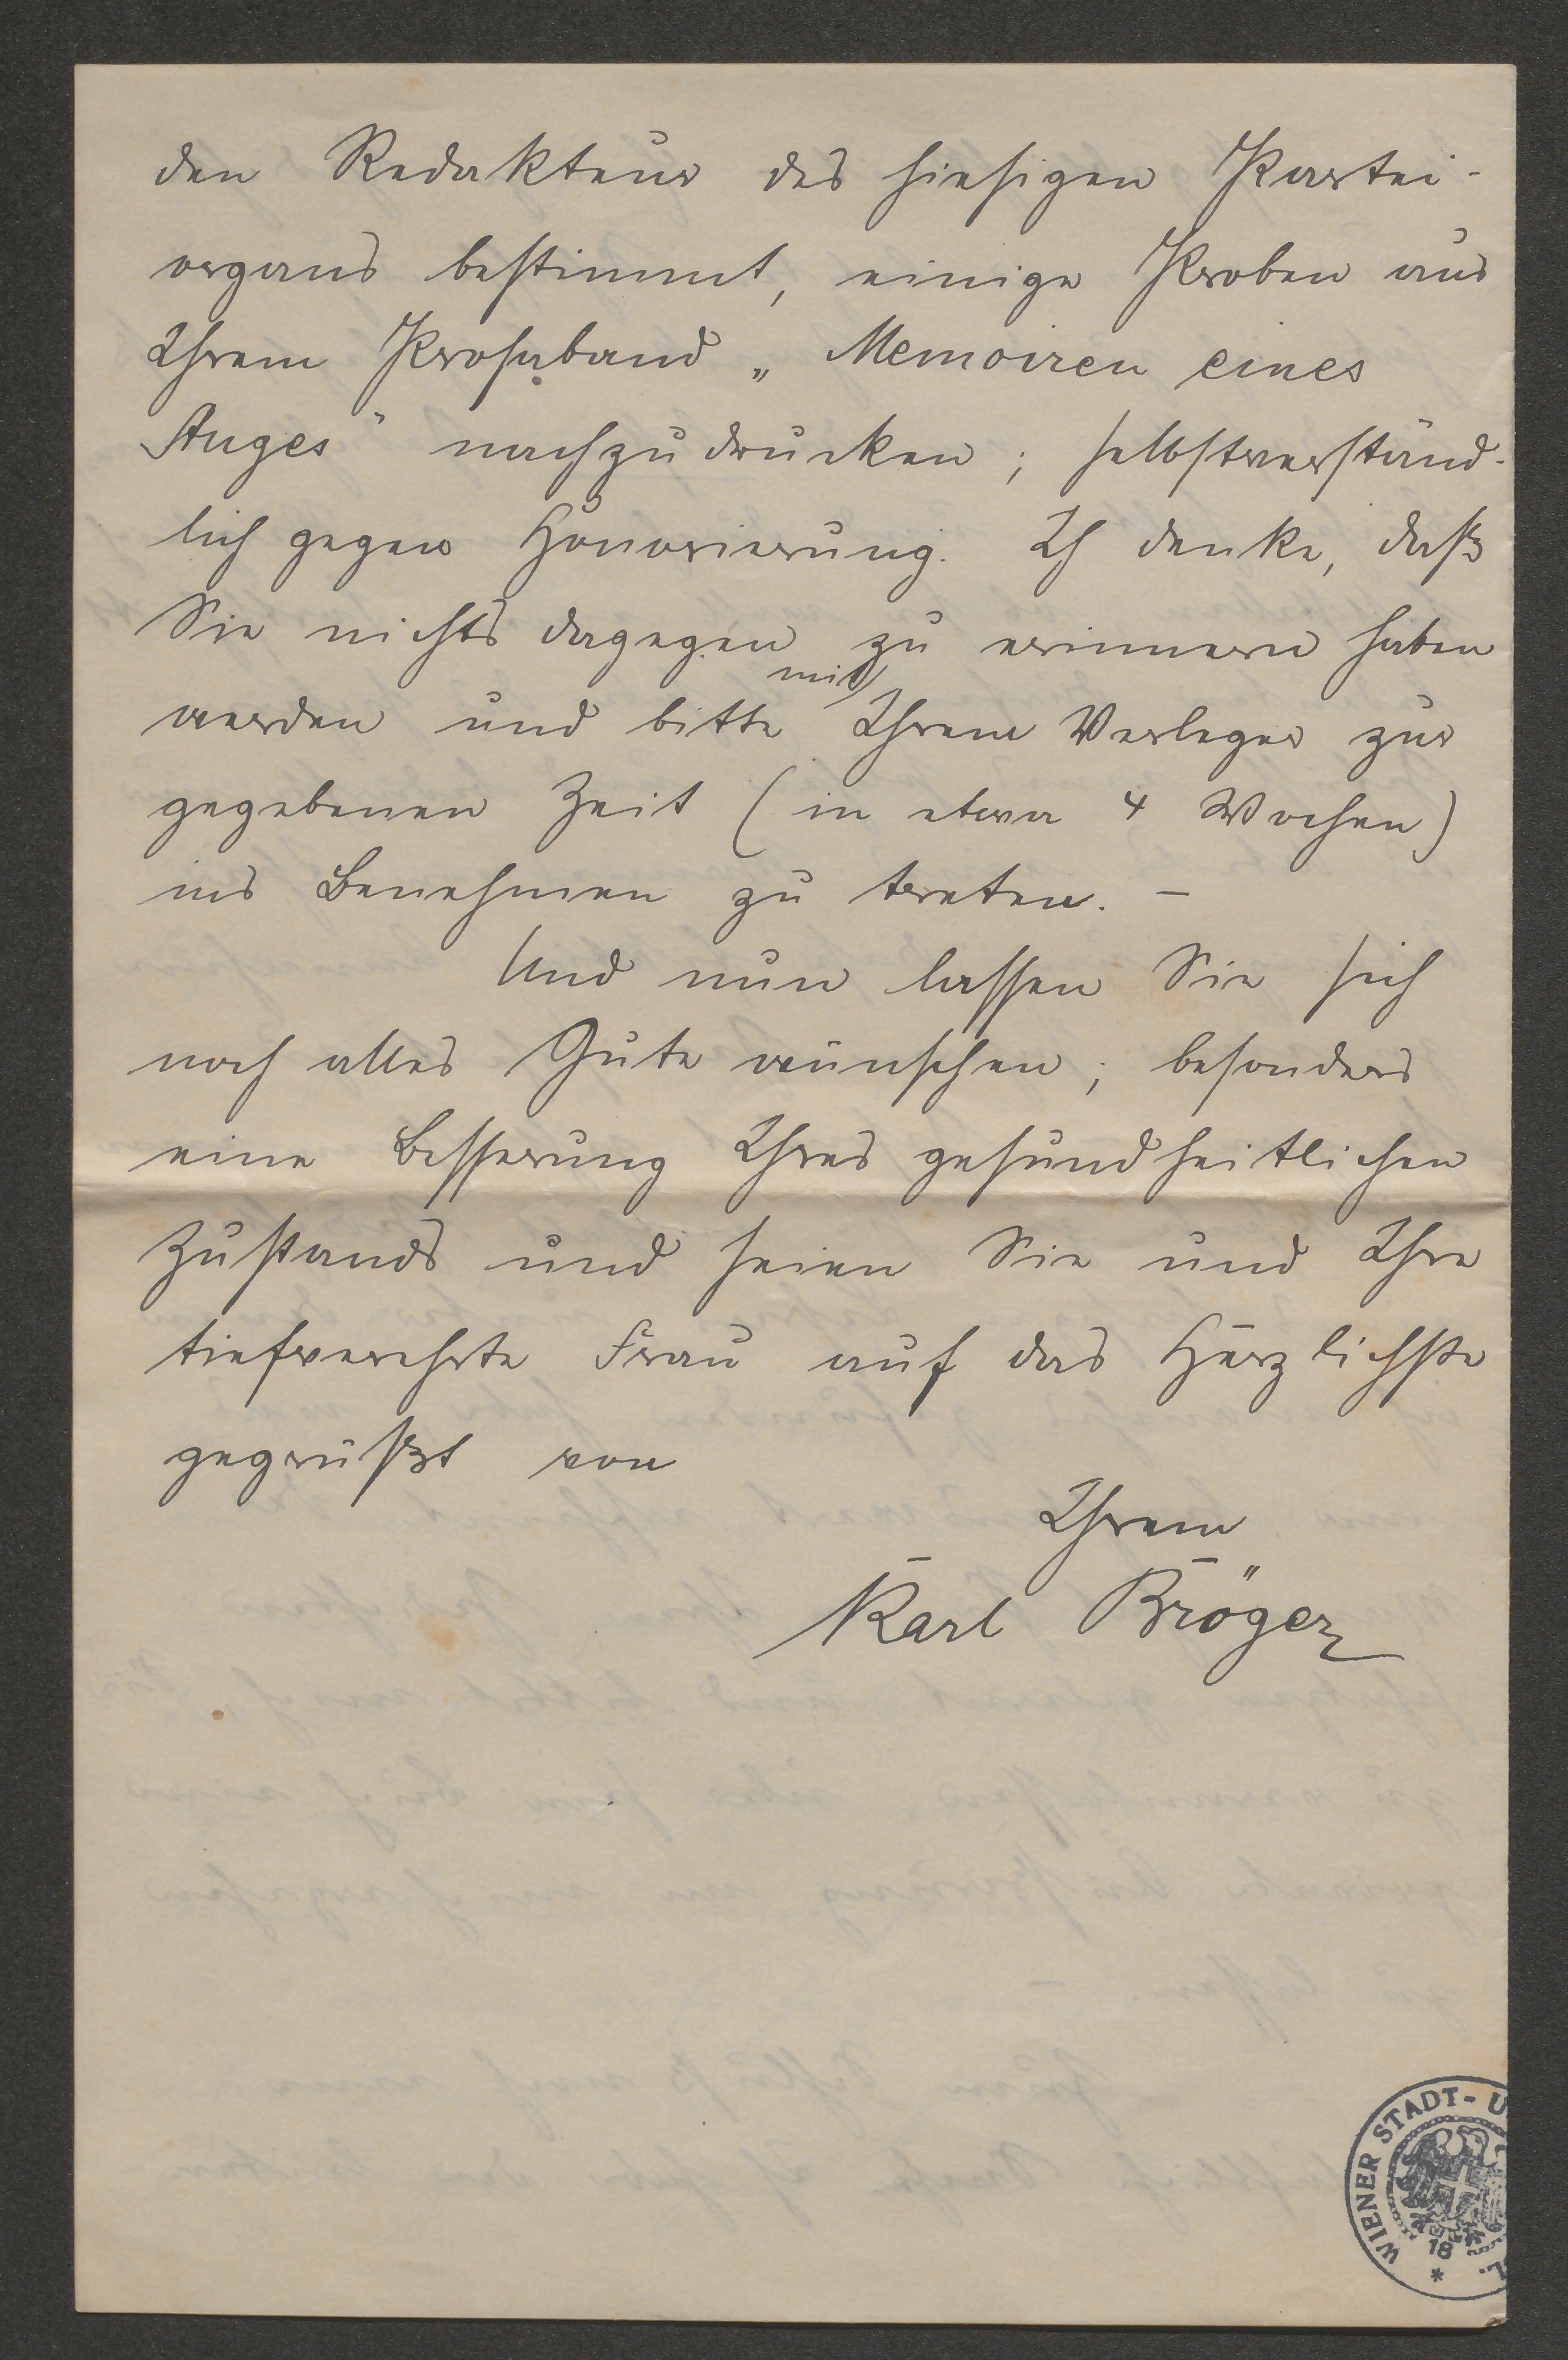 den Redakteur des hiesigen Partei-
organs bestimmt, einige Proben aus
Ihrem Prosaband „Memoiren eines
Auges" nachzudrucken; selbstverständ-
lich gegen Honorierung. Ich denke, daß
Sie nichts dagegen zu erinnern haben
mit
werden und bitte Ihrem Verleger zur
gegebenen Zeit (in etwa 4 Wochen)
ins Benehmen zu treten. –
Und nun lassen Sie sich
noch alles Gute wünschen; besonders
eine Besserung Ihres gesundheitlichen
Zustands und seien Sie und Ihre
tiefverehrte Frau auf das Herzlichste
gegrüßt von
Ihrem
Karl Bröger
WIENER STADT- U
18